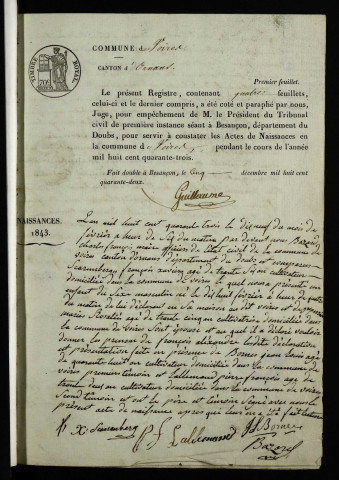 TIMBRE ROYAL
COMMUNE de Voires
CANTON d'Ornans.
Premier feuillet.
Le présent Registre, contenant quatre feuillets,
celui-ci et le dernier compris, a été coté et paraphé par nous,
Juge, pour empêchement de M. le Président du Tribunal
civil de première instance séant à Besançon, département du
Doubs, pour servir à constater les Actes de Naissances en
la commune de Voires, pendant le cours de l'année
mil huit cent quarante-trois.
Fait double à Besançon, le cinq décembre mil huit cent
quarante-deux.
Guillaume
NAISSANCES.
1843.
L'an mil huit cent quarante trois le dix neuf du mois de
février a heure de du matin par devant nous
charle françois maire officier de l'état civil de la commune de
voires canton d'ornans département du doubs est comparu
françois xavier agé de trente cinq ans cultivateur
domicilié dans la commune de voires lequel nous a présenté un
enfant du sex masculin né le dix huit février a heure de
du matin de lui déclarant en sa maison au dit voires et de
marie agé de trente cinq ans cultivatrice domiciliée dans
la commune de voires son épouse et au quel il a déclaré vouloir
donner les prenoms de françois alexandre la dite déclaration
et présentation faite en présence de Bornes jean louis agé de
quarante huit ans cultivateur domicilié dans la commune de
voires premier témoin et Lallemand pierre françois agé de
trente deux ans cultivateur domicilié dans la commune de voires
second témoin et ont le père et témoin signé avec nous le
présent acte de naissance apres qui leur en a été fait lecture
P. F. Lallemand